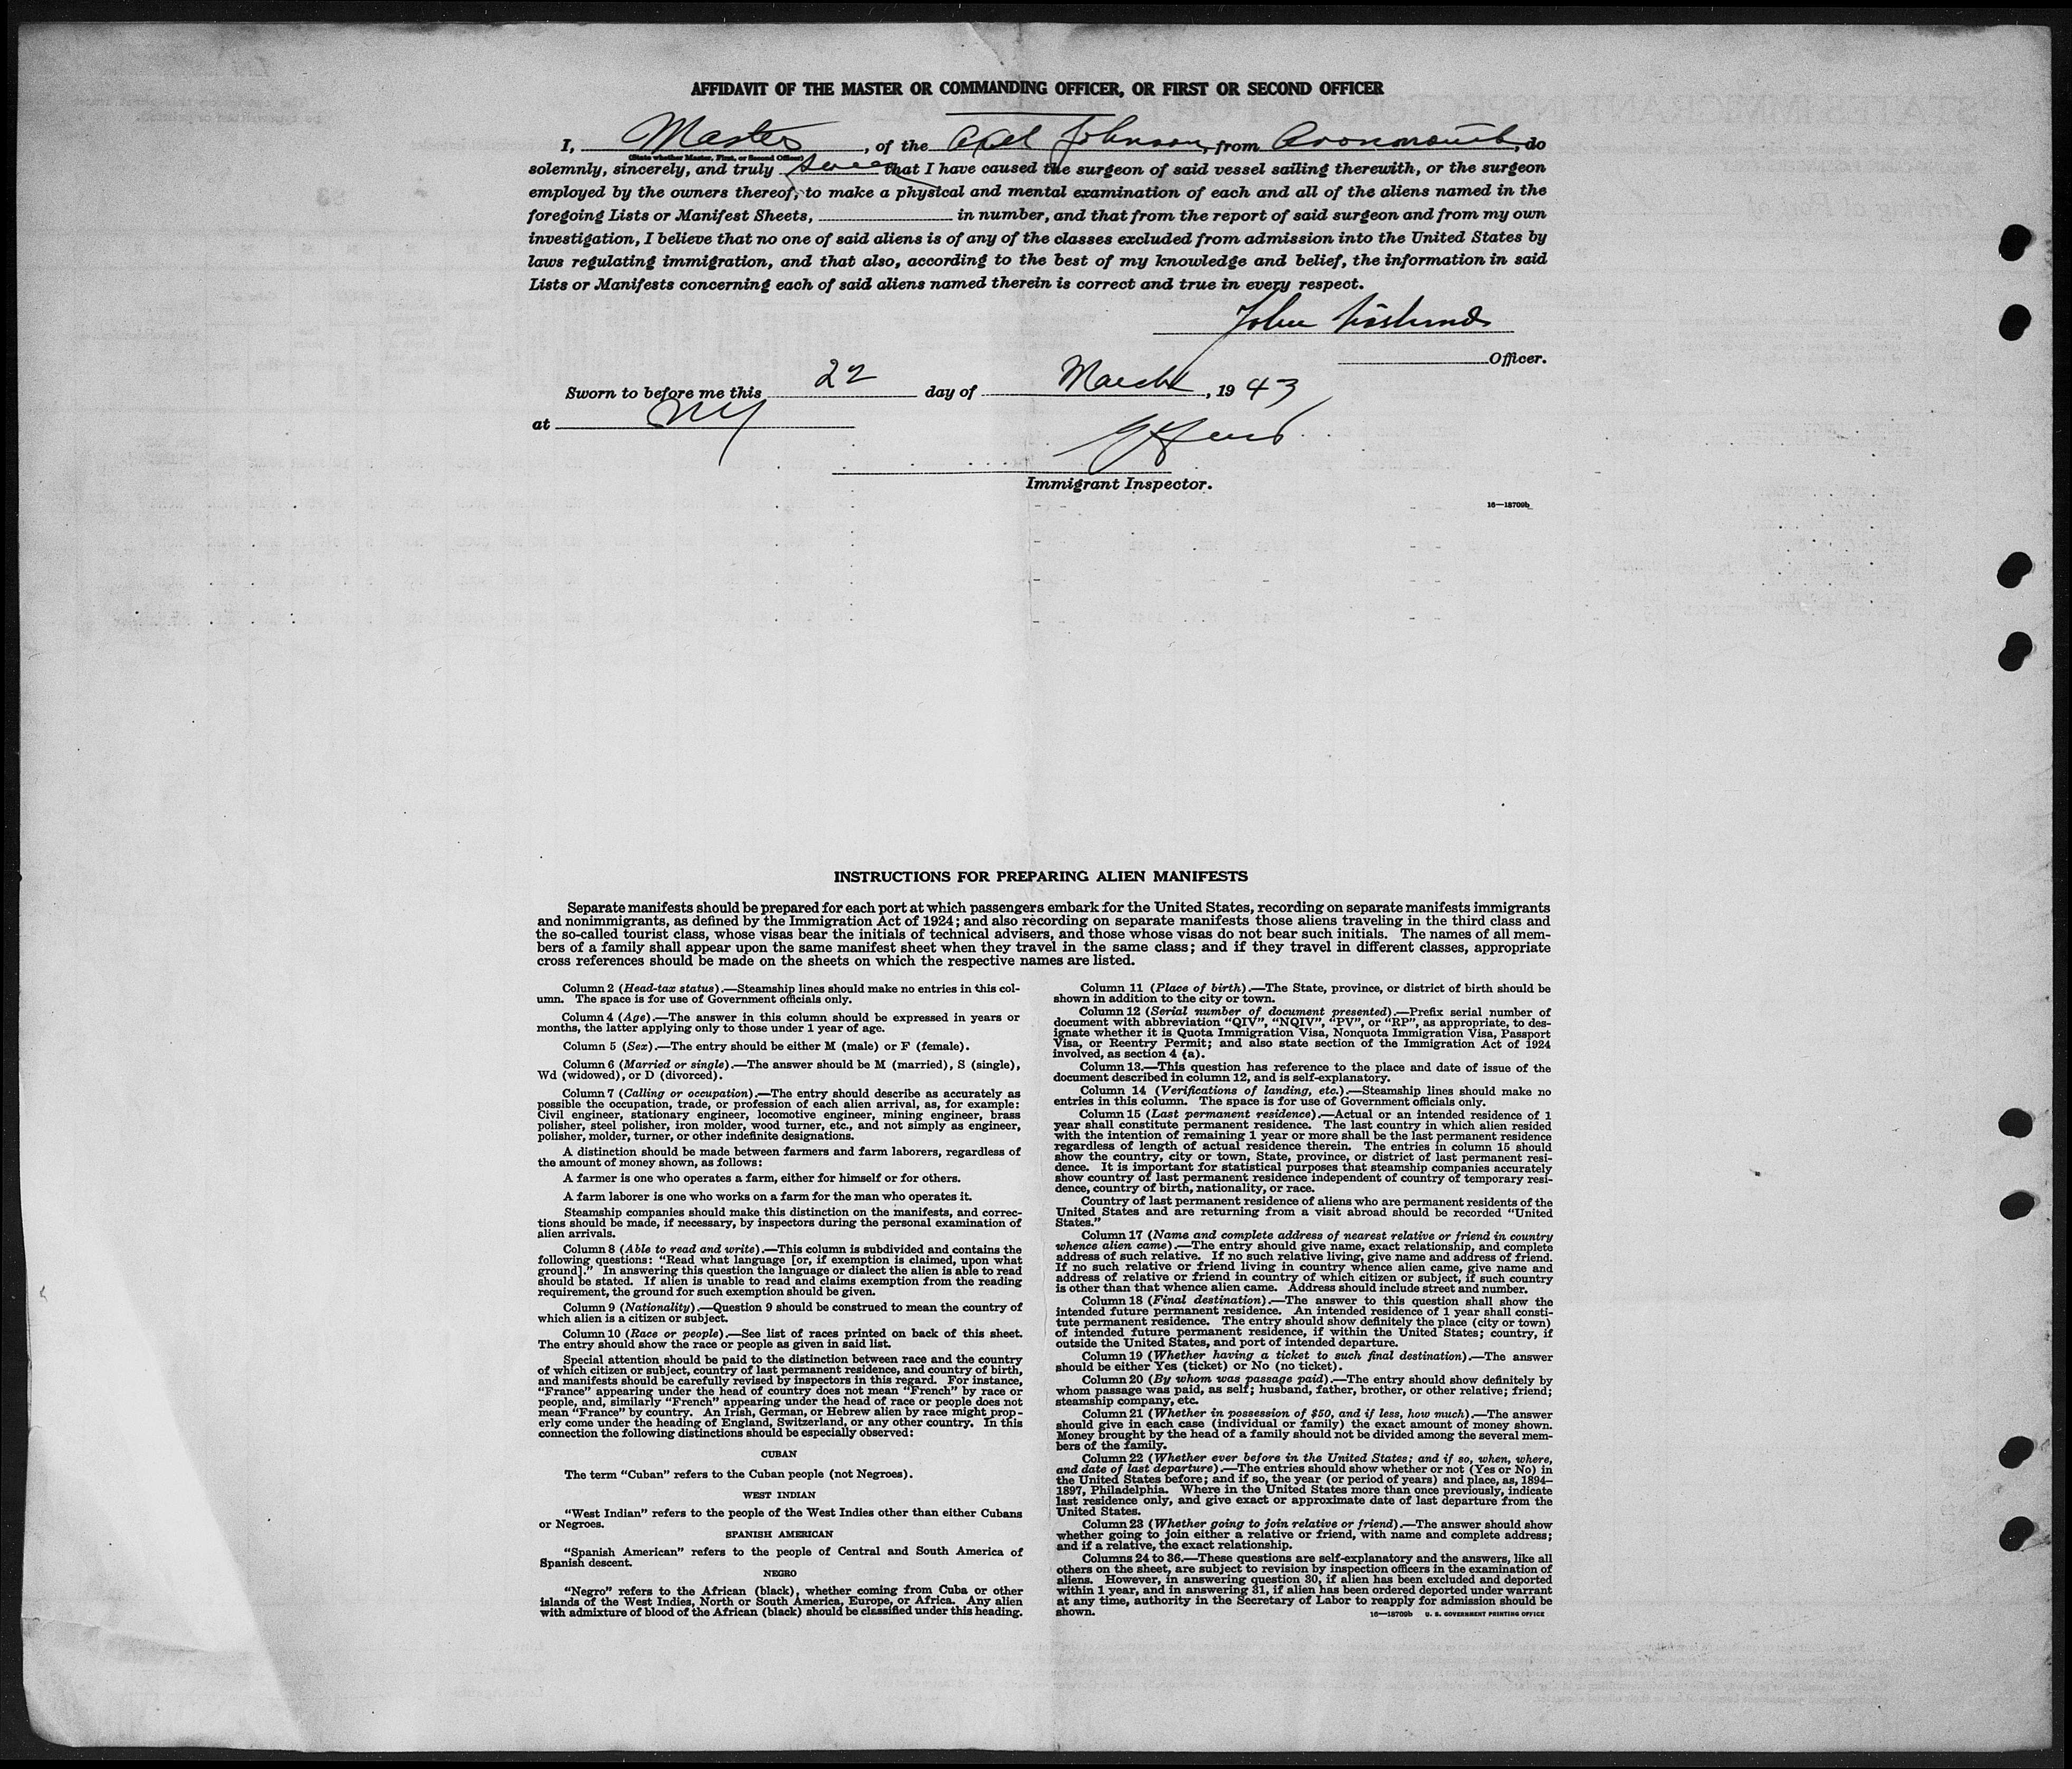 AFFIDAVIT OF THE MASTER OR COMMANDING OFFICER, OR FIRST OR SECOND OFFICER
I, Master, of the Axel Johnson, from Avonmouth, do
(State whether Master, First, or Second Officer)
solemnly, sincerely, and truly swear that I have caused the surgeon of said vessel sailing therewith, or the surgeon
employed by the owners thereof, to make a physical and mental examination of each and all of the aliens named in the
foregoing Lists or Manifest Sheets, in number, and that from the report of said surgeon and from my own
investigation, I believe that no one of said aliens is of any of the classes excluded from admission into the United States by
laws regulating immigration, and that also, according to the best of my knowledge and belief, the information in said
Lists or Manifests concerning each of said aliens named therein is correct and true in every respect.
John
Officer.
Sworn to before me this 22 day of March, 1943
at NY
Immigrant Inspector.
16—18709b
INSTRUCTIONS FOR PREPARING ALIEN MANIFESTS
Separate manifests should be prepared for each port at which passengers embark for the United States, recording on separate manifests immigrants
and nonimmigrants, as defined by the Immigration Act of 1924; and also recording on separate manifests those aliens traveling in the third class and
the so-called tourist class, whose visas bear the initials of technical advisers, and those whose visas do not bear such initials. The names of all mem-
bers of a family shall appear upon the same manifest sheet when they travel in the same class; and if they travel in different classes, appropriate
cross references should be made on the sheets on which the respective names are listed.
Column 2 (Head-tax status).—Steamship lines should make no entries in this col-
umn. The space is for use of Government officials only.
Column 4 (Age).—The answer in this column should be expressed in years or
months, the latter applying only to those under 1 year of age.
Column 5 (Sex).—The entry should be either M (male) or F (female).
Column 6 (Married or single).—The answer should be M (married), S (single),
Wd (widowed), or D (divorced).
Column 7 (Calling or occupation).—The entry should describe as accurately as
possible the occupation, trade, or profession of each alien arrival, as, for example:
Civil engineer, stationary engineer, locomotive engineer, mining engineer, brass
polisher, steel polisher, iron molder, wood turner, etc., and not simply as engineer,
polisher, molder, turner, or other indefinite designations.
A distinction should be made between farmers and farm laborers, regardless of
the amount of money shown, as follows:
A farmer is one who operates a farm, either for himself or for others.
A farm laborer is one who works on a farm for the man who operates it.
Steamship companies should make this distinction on the manifests, and correc-
tions should be made, if necessary, by inspectors during the personal examination of
alien arrivals.
Column 8 (Able to read and write).—This column is subdivided and contains the
following questions: "Read what language [or, if exemption is claimed, upon what
ground]." In answering this question the language or dialect the alien is able to read
should be stated. If alien is unable to read and claims exemption from the reading
requirement, the ground for such exemption should be given.
Column 9 (Nationality).—Question 9 should be construed to mean the country of
which alien is a citizen or subject.
Column 10 (Race or people).—See list of races printed on back of this sheet.
The entry should show the race or people as given in said list.
Special attention should be paid to the distinction between race and the country
of which citizen or subject, country of last permanent residence, and country of birth,
and manifests should be carefully revised by inspectors in this regard. For instance,
"France" appearing under the head of country does not mean "French" by race or
people, and, similarly "French" appearing under the head of race or people does not
mean "France" by country. An Irish, German, or Hebrew alien by race might prop-
erly come under the heading of England, Switzerland, or any other country. In this
connection the following distinctions should be especially observed:
CUBAN
The term "Cuban" refers to the Cuban people (not Negroes).
WEST INDIAN
"West Indian" refers to the people of the West Indies other than either Cubans
or Negroes.
SPANISH AMERICAN
"Spanish American" refers to the people of Central and South America of
Spanish descent.
NEGRO
"Negro" refers to the African (black), whether coming from Cuba or other
islands of the West Indies, North or South America, Europe, or Africa. Any alien
with admixture of blood of the African (black) should be classified under this heading.
Column 11 (Place of birth).—The State, province, or district of birth should be
shown in addition to the city or town.
Column 12 (Serial number of document presented).—Prefix serial number of
document with abbreviation "QIV", "NQIV", "PV", or "RP", as appropriate, to des-
ignate whether it is Quota Immigration Visa, Nonquota Immigration Visa, Passport
Visa, or Reentry Permit; and also state section of the Immigration Act of 1924
involved, as section 4 (a).
Column 13.—This question has reference to the place and date of issue of the
document described in column 12, and is self-explanatory.
Column 14 (Verifications of landing, etc.).—Steamship lines should make no
entries in this column. The space is for use of Government officials only.
Column 15 (Last permanent residence).—Actual or an intended residence of 1
year shall constitute permanent residence. The last country in which alien resided
with the intention of remaining 1 year or more shall be the last permanent residence
regardless of length of actual residence therein. The entries in column 15 should
show the country, city or town, State, province, or district of last permanent resi-
dence. It is important for statistical purposes that steamship companies accurately
show country of last permanent residence independent of country of temporary resi-
dence, country of birth, nationality, or race.
Country of last permanent residence of aliens who are permanent residents of the
United States and are returning from a visit abroad should be recorded "United
States."
Column 17 (Name and complete address of nearest relative or friend in country
whence alien came).—The entry should give name, exact relationship, and complete
address of such relative. If no such relative living, give name and address of friend.
If no such relative or friend living in country whence alien came, give name and
address of relative or friend in country of which citizen or subject, if such country
is other than that whence alien came. Address should include street and number.
Column 18 (Final destination).—The answer to this question shall show the
intended future permanent residence. An intended residence of 1 year shall consti-
tute permanent residence. The entry should show definitely the place (city or town)
of intended future permanent residence, if within the United States; country, if
outside the United States, and port of intended departure.
Column 19 (Whether having a ticket to such final destination).—The answer
should be either Yes (ticket) or No (no ticket).
Column 20 (By whom was passage paid).—The entry should show definitely by
whom passage was paid, as self; husband, father, brother, or other relative; friend;
steamship company, etc.
Column 21 (Whether in possession of $50, and if less, how much).—The answer
should give in each case (individual or family) the exact amount of money shown.
Money brought by the head of a family should not be divided among the several mem-
bers of the family.
Column 22 (Whether ever before in the United States; and if so, when, where,
and date of last departure).—The entries should show whether or not (Yes or No) in
the United States before; and if so, the year (or period of years) and place, as, 1894–
1897, Philadelphia. Where in the United States more than once previously, indicate
last residence only, and give exact or approximate date of last departure from the
United States.
Column 23 (Whether going to join relative or friend).—The answer should show
whether going to join either a relative or friend, with name and complete address;
and if a relative, the exact relationship.
Columns 24 to 36.—These questions are self-explanatory and the answers, like all
others on the sheet, are subject to revision by inspection officers in the examination of
aliens. However, in answering question 30, if alien has been excluded and deported
within 1 year, and in answering 31, if alien has been ordered deported under warrant
at any time, authority in the Secretary of Labor to reapply for admission should be
shown.
16—18709b U. S. GOVERNMENT PRINTING OFFICE